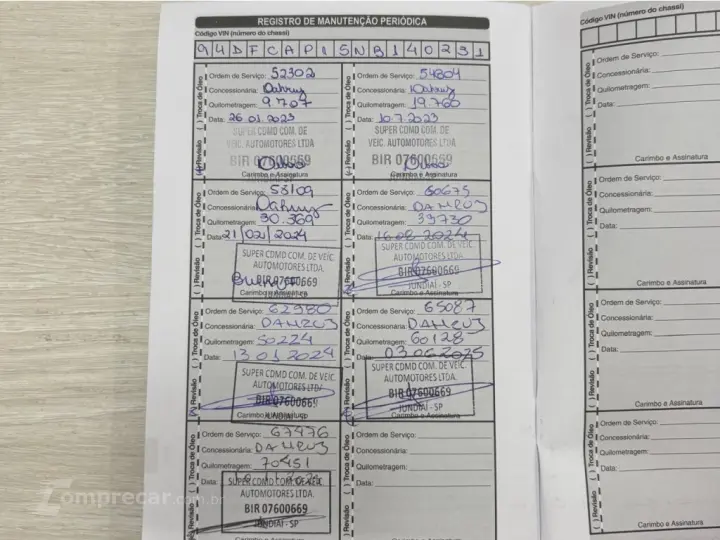 REGISTRO DE MANUTENÇÃO PERIÓDICA
Código VIN (número do chassi)
94DFCAP15NB140231
Ordem de Serviço: 52302
Concessionária: Dahruj
Quilometragem: 9.707
Data: 26.01.2023
SUPER CDMD COM. DE
VEIC. AUTOMOTORES LTDA
BIR 07600669
Carimbo e Assinatura
( ) Revisão ( ) Troca de Óleo
Ordem de Serviço: 54804
Concessionária: Dahruj
Quilometragem: 19.760
Data: 10.7.2023
SUPER CDMD COM. DE
VEIC. AUTOMOTORES LTDA
BIR 07600669
Carimbo e Assinatura
( ) Revisão ( ) Troca de Óleo
Ordem de Serviço: 58109
Concessionária: Dahruj
Quilometragem: 30.369
Data: 21/02/2024
SUPER CDMD COM. DE VEIC.
AUTOMOTORES LTDA.
BIR 07600669
Carimbo e Assinatura
JUNDIAÍ - SP
( ) Revisão ( ) Troca de Óleo
Ordem de Serviço: 60675
Concessionária: DAHRUJ
Quilometragem: 39730
Data: 16.08.2024
SUPER CDMD COM. DE VEIC.
AUTOMOTORES LTDA.
BIR 07600669
JUNDIAÍ - SP
Carimbo e Assinatura
( ) Revisão ( ) Troca de Óleo
Ordem de Serviço: 62980
Concessionária: DAHRUJ
Quilometragem: 50224
Data: 13 01 2024
SUPER CDMD COM. DE VEIC.
AUTOMOTORES LTDA.
BIR 07600669
Carimbo e Assinatura
JUNDIAÍ - SP
( ) Revisão ( ) Troca de Óleo
Ordem de Serviço: 65087
Concessionária: DAHRUJ
Quilometragem: 60128
Data: 03.06.2025
SUPER CDMD COM. DE VEIC.
AUTOMOTORES LTDA.
BIR 07600669
JUNDIAÍ - SP
Carimbo e Assinatura
( ) Revisão ( ) Troca de Óleo
Ordem de Serviço: 67476
Concessionária: DAHRUJ
Quilometragem: 70451
Data:
SUPER CDMD COM. DE VEIC.
AUTOMOTORES LTDA.
BIR 07600669
JUNDIAÍ - SP
( ) Revisão ( ) Troca de Óleo
Ordem de Serviço:
Concessionária:
Quilometragem:
Data:
Carimbo e Assinatura
( ) Revisão ( ) Troca de Óleo
Código VIN (número do chassi)
Ordem de Serviço:
Concessionária:
Quilometragem:
Data:
Carimbo e Assinatura
( ) Revisão ( ) Troca de Óleo
Ordem de Serviço:
Concessionária:
Quilometragem:
Data:
Carimbo e Assinatura
( ) Revisão ( ) Troca de Óleo
Ordem de Serviço:
Concessionária:
Quilometragem:
Data:
Carimbo e Assinatura
( ) Revisão ( ) Troca de Óleo
Ordem de Serviço:
Concessionária:
Quilometragem:
Data:
Carimbo e Assinatura
( ) Revisão ( ) Troca de Óleo
comprecar.com.br